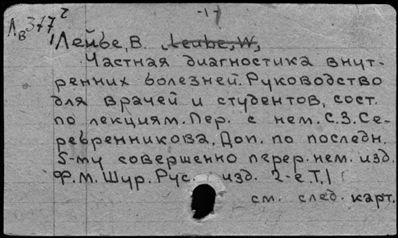 -17
Л.в 377²
Лейбе, В. Leube, W,
Частная диагностика внут-
ренних болезней. Руководство
для врачей и студентов, сост.
по лекциям. Пер. с нем. С.З. Се-
ребренникова. Доп. по последн.
5-му совершенно перер. нем. изд.
Ф.М. Шур. Рус. изд. 2-е Т. I
см. след. карт.